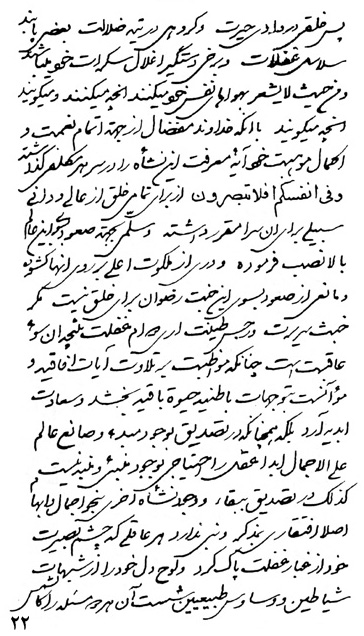 پس خلقی در وادی حیرت و گروهی در تیه ضلالت بعضی پابند
سلاسل غفلات و برخی دستگیر اغلال سکرات خود میباشند
و من حیث لایشعر بهواهای نفس خود میکنند آنچه میکنند و میگویند
آنچه میگویند با آنکه خداوند مفضال از جهة اتمام نعمت و
اکمال موهبت خود آیهٔ معرفت این نشأه را در سر هر مکلفی گذاشته
وفی انفسکم افلا تبصرون از برای تمامی خلق از عالی و دانی
سبیلی برای آن سرا مقرر داشته و سلّمی بجهة صعود باین عالم
بالا نصب فرموده و دری از ملکوت اعلی بر روی آنها گشوده
و مانعی از صعود بسوی این جنت رضوان برای خلق نیست مگر
خبث سریرت و رجس طینت ارى مرام غفلت نتیجه‌اش سوء
عاقبت است چنانکه مواظبت بر تلاوت آیات آفاقیه و
مؤانست توجهات باطنیه حیوة باقیه بخشد و سعادت
ابدیه آرد بلکه همچنانکه در تصدیق بوجود مبدء و صانع عالم
علی الاجمال ابدا عقلی را احتیاجی بوجود منبّئی و نذیری نیست
کذلک در تصدیق ببقاء و وجود نشأه آخری بنحو اجمال دلها
اصلا افتقاری بمذکر و نبی ندارد هر عاقلی که چشم بصیرت
خود از غبار غفلت پاک کرد و لوح دل خود را از شبهات
شیاطین و وساوس طبیعیین شست آن هر دو مسئله را کالشمس
۲۲